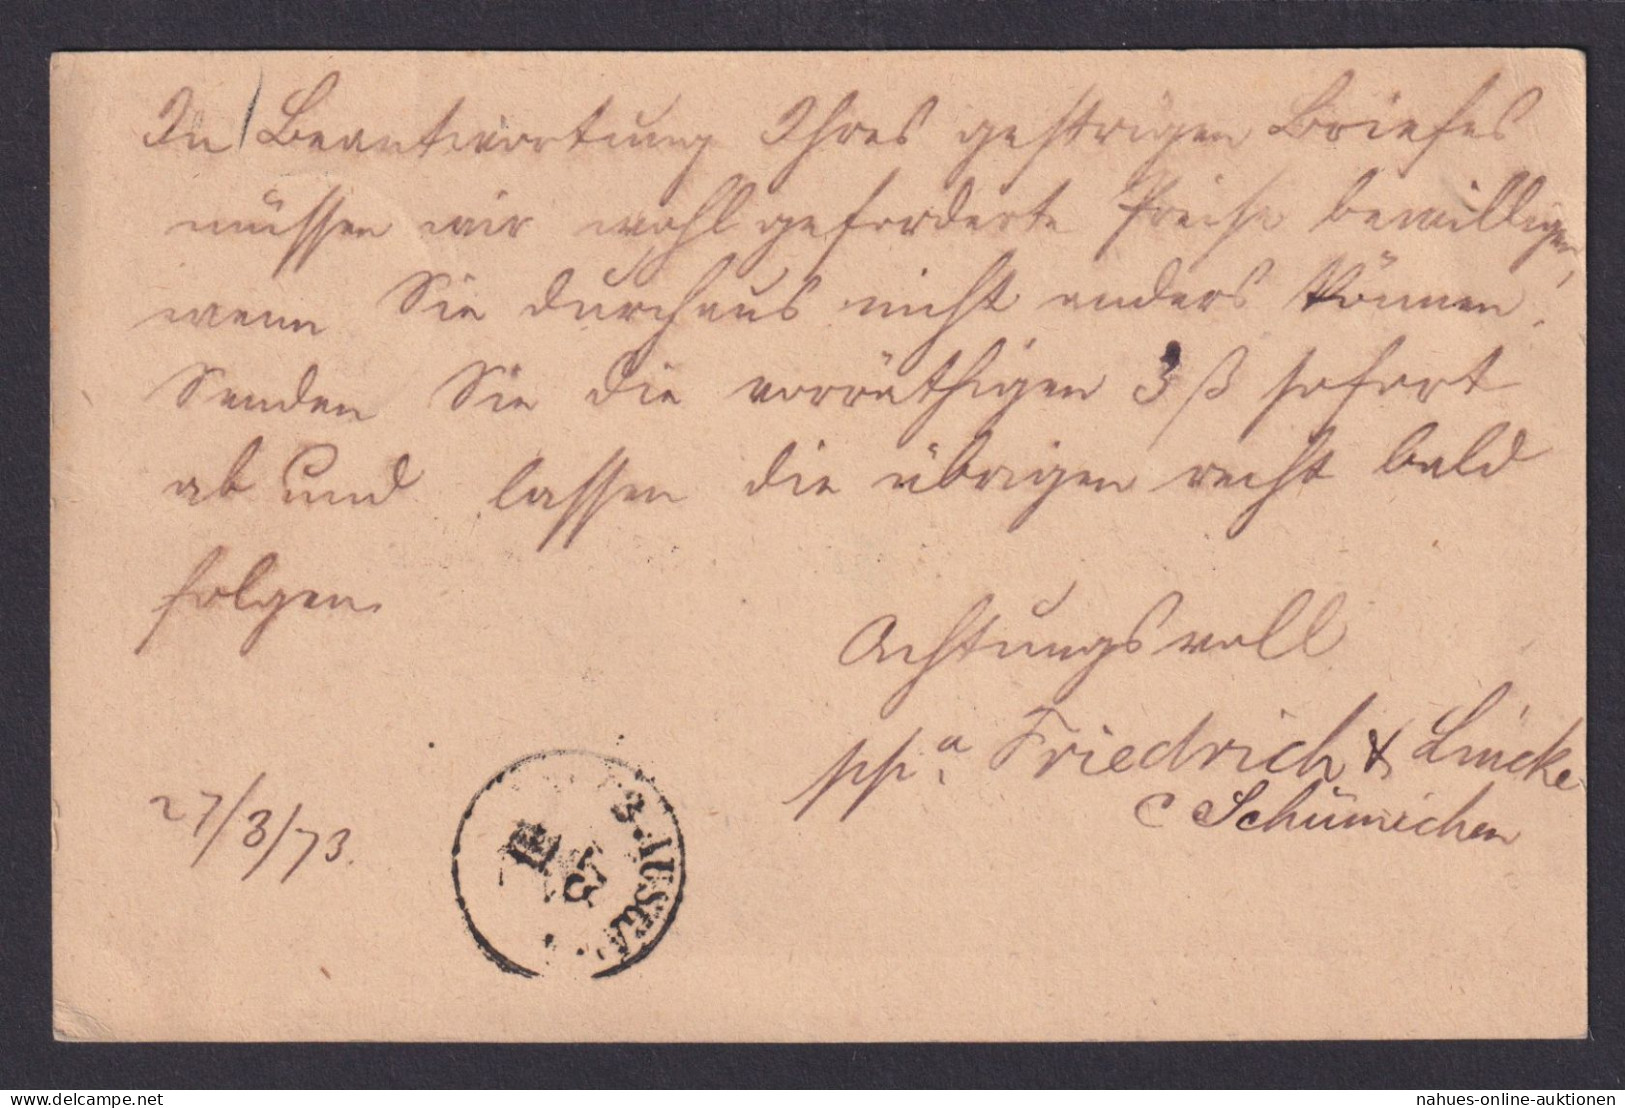 In Beantwortung Ihres gestrigen Briefes
müssen wir wohl geforderte Preise bewilligen,
wenn Sie durchaus nicht anders können.
Senden Sie die vorräthigen 3 ß sofort
ab und lassen die übrigen recht bald
folgen.
Achtungsvoll
ppa. Friedrich & Lücke
C Schümichen
27/3/73.
nahues-online-auktionen